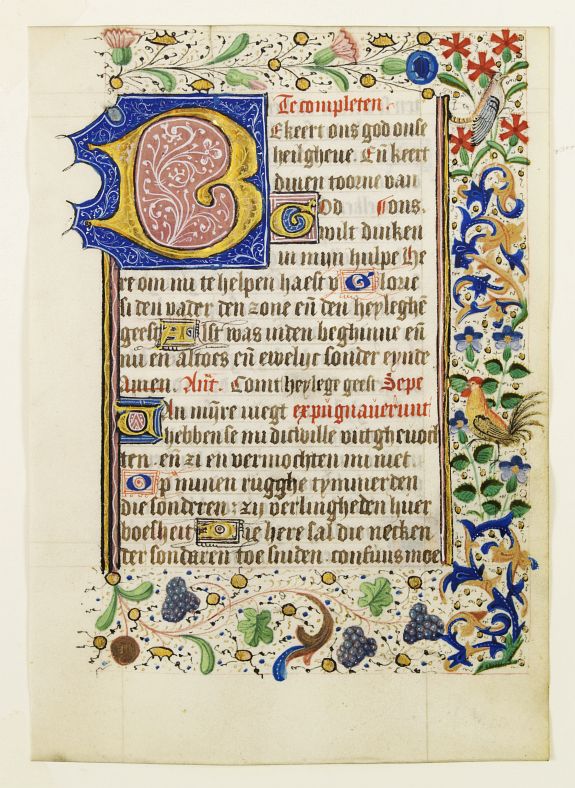 Te completen.
Bekeert ons god onse
heilgheue. Eñ keert
dinen toorne van
God ons.
wilt duncken
in mijn hulpe He
re om mi te helpen haest v Glorie
si den vader den zone eñ den heyleghē
geest Alst was inden beghinne eñ
nu en altoes eñ ewelyc sonder eynde
Amen. Añt. Comt heylege geest Sepe
Van mijre iuegt expugnauerunt
hebben se mi dicwille vuytgheuoch
ten. eñ zi en vermochten mi niet
Op minen rugghe tymmerden
die sonderen: zy verlingheden hier
bosheit Die here sal die necken
der sondaren toe sniden. confuus moe